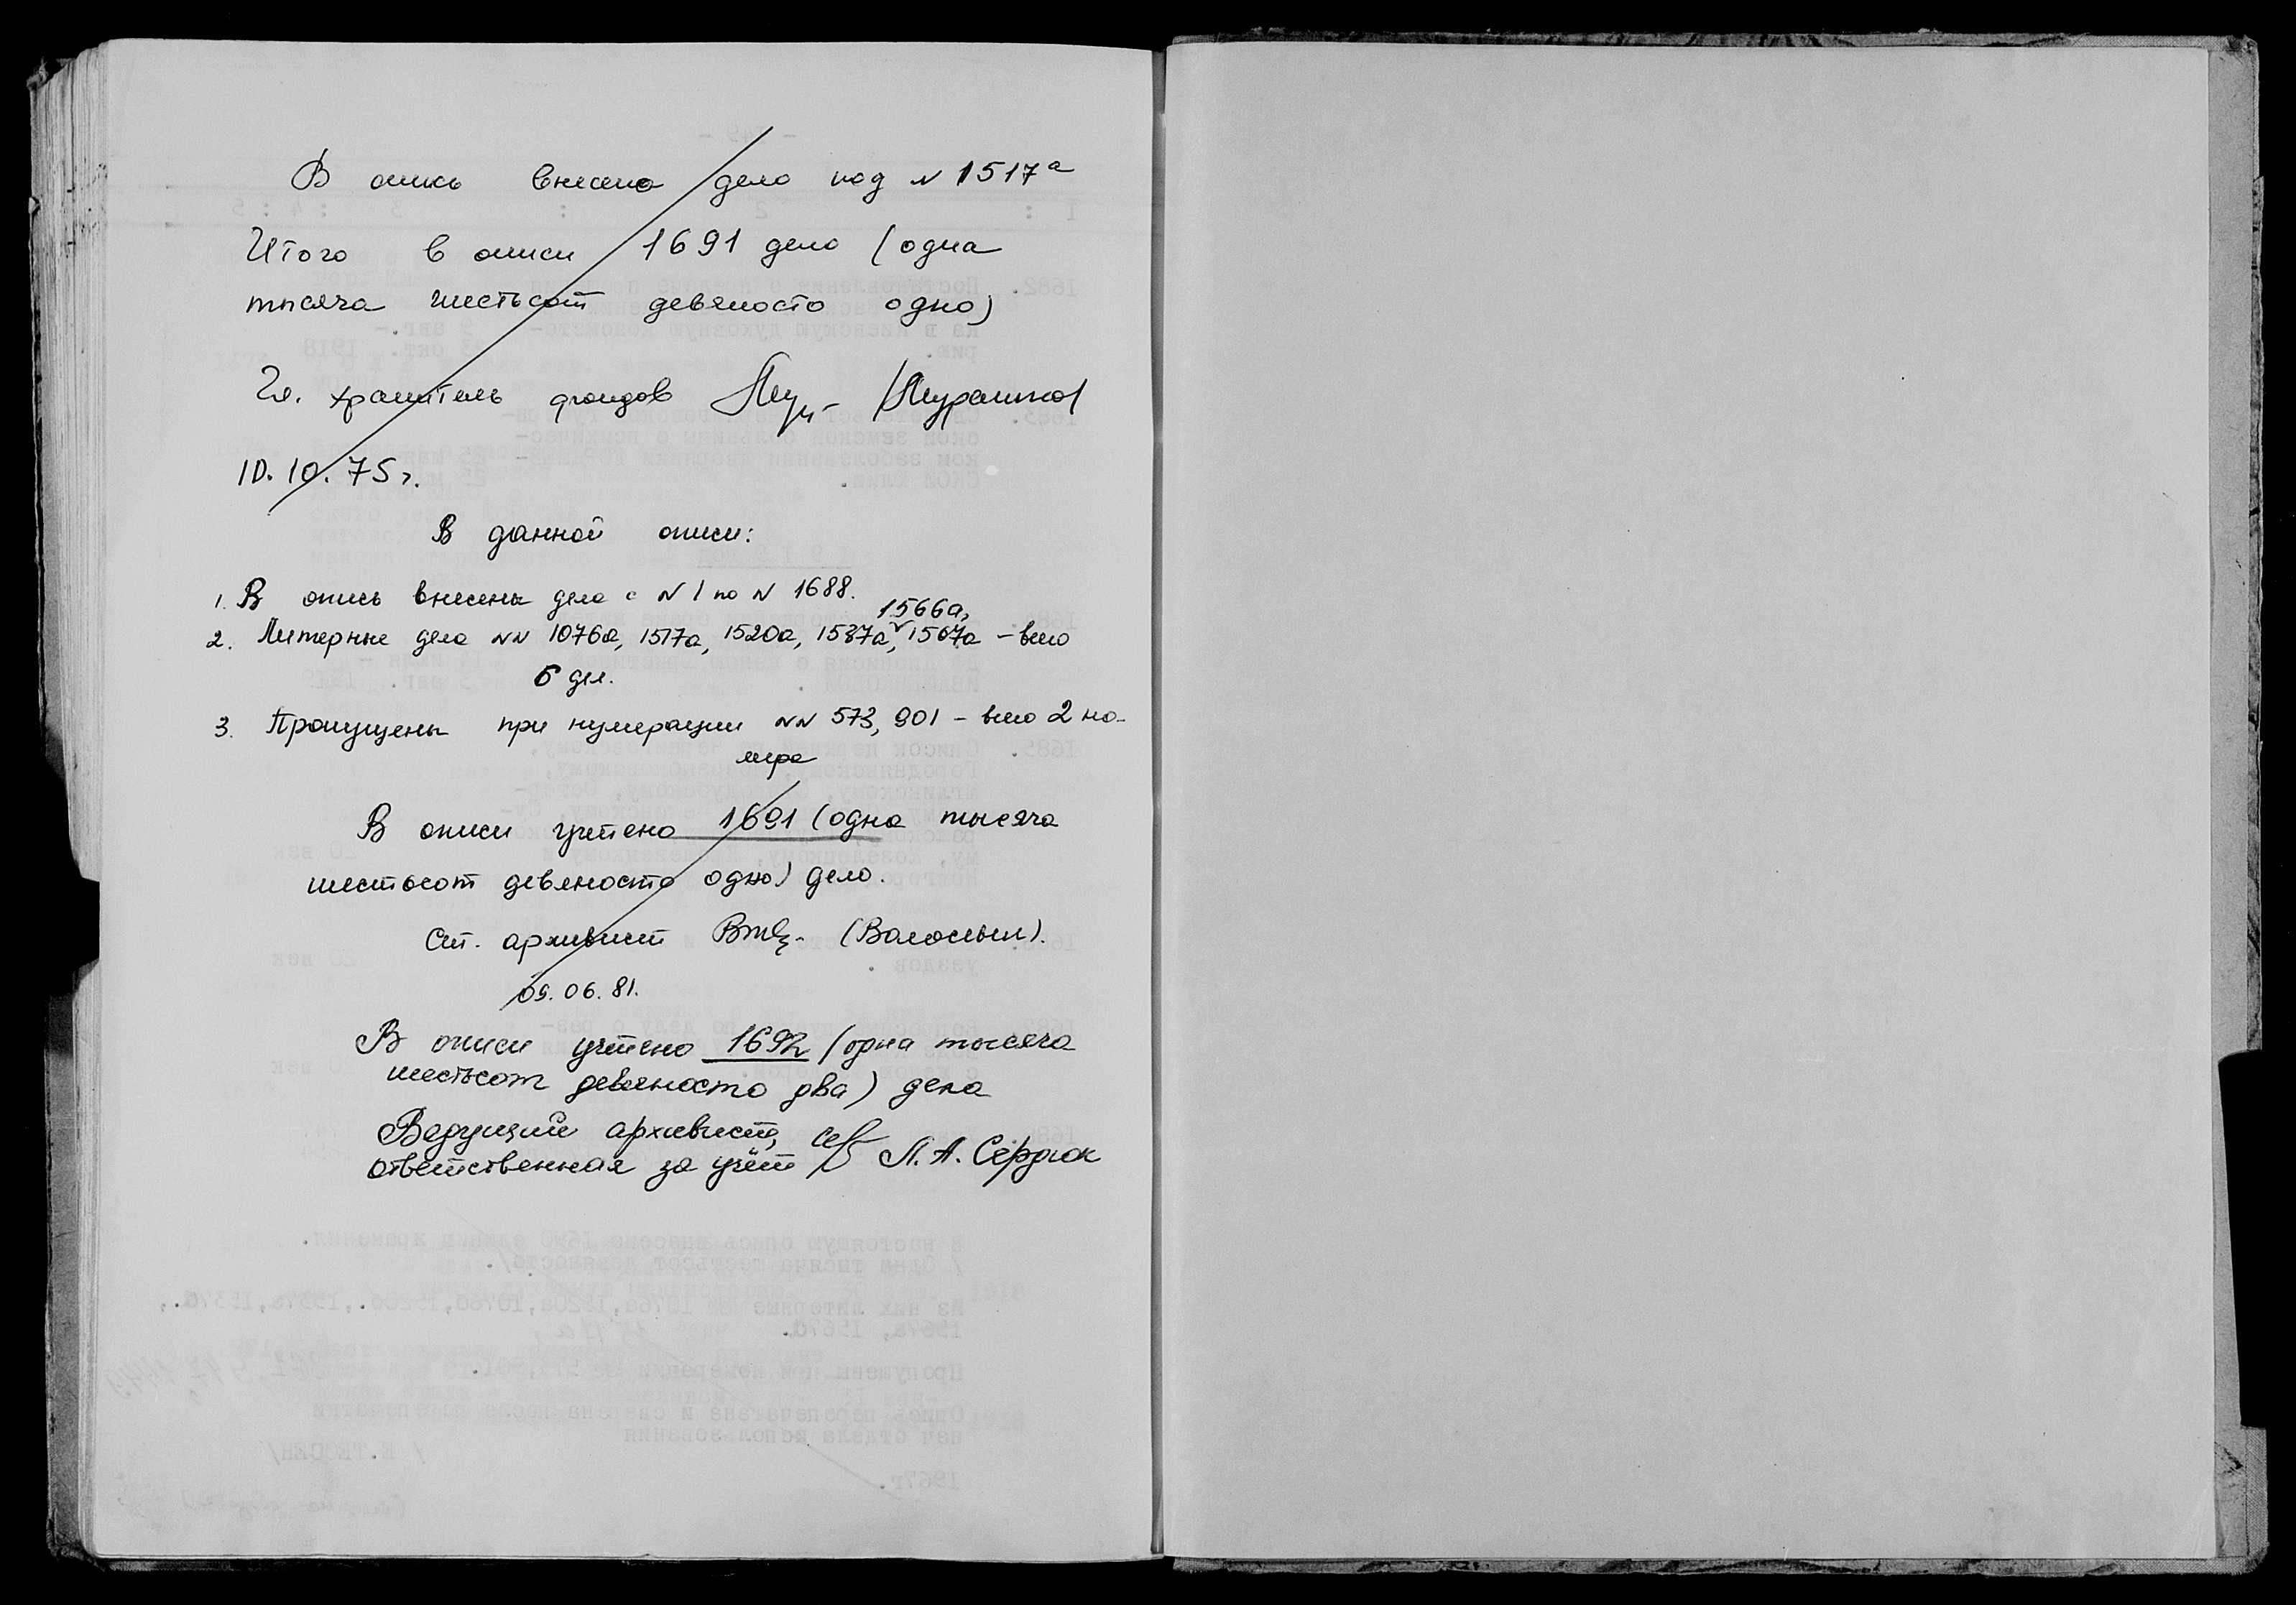 В опись внесено дело под N 1517а
Итого в описи 1691 дело (одна
тысяча шестьсот девяносто одно)
Гл. хранитель фондов (Мурашко)
10.10.75 г.
В данной описи:
1. В опись внесены дела с N 1 по N 1688.
1566а,
2. Литерные дела NN 1076а, 1517а, 1520а, 1537а, 1567а – всего
6 дел.
3. Пропущены при нумерации NN 573, 901 – всего 2 но-
мера
В описи учтено 1691 (одна тысяча
шестьсот девяносто одно) дело.
Ст. архивист (Волосын).
09.06.81.
В описи учтено 1692 (одна тысяча
шестьсот девяносто два) дела
Ведущий архивист,
ответственная за учёт Л.А. Сердюк